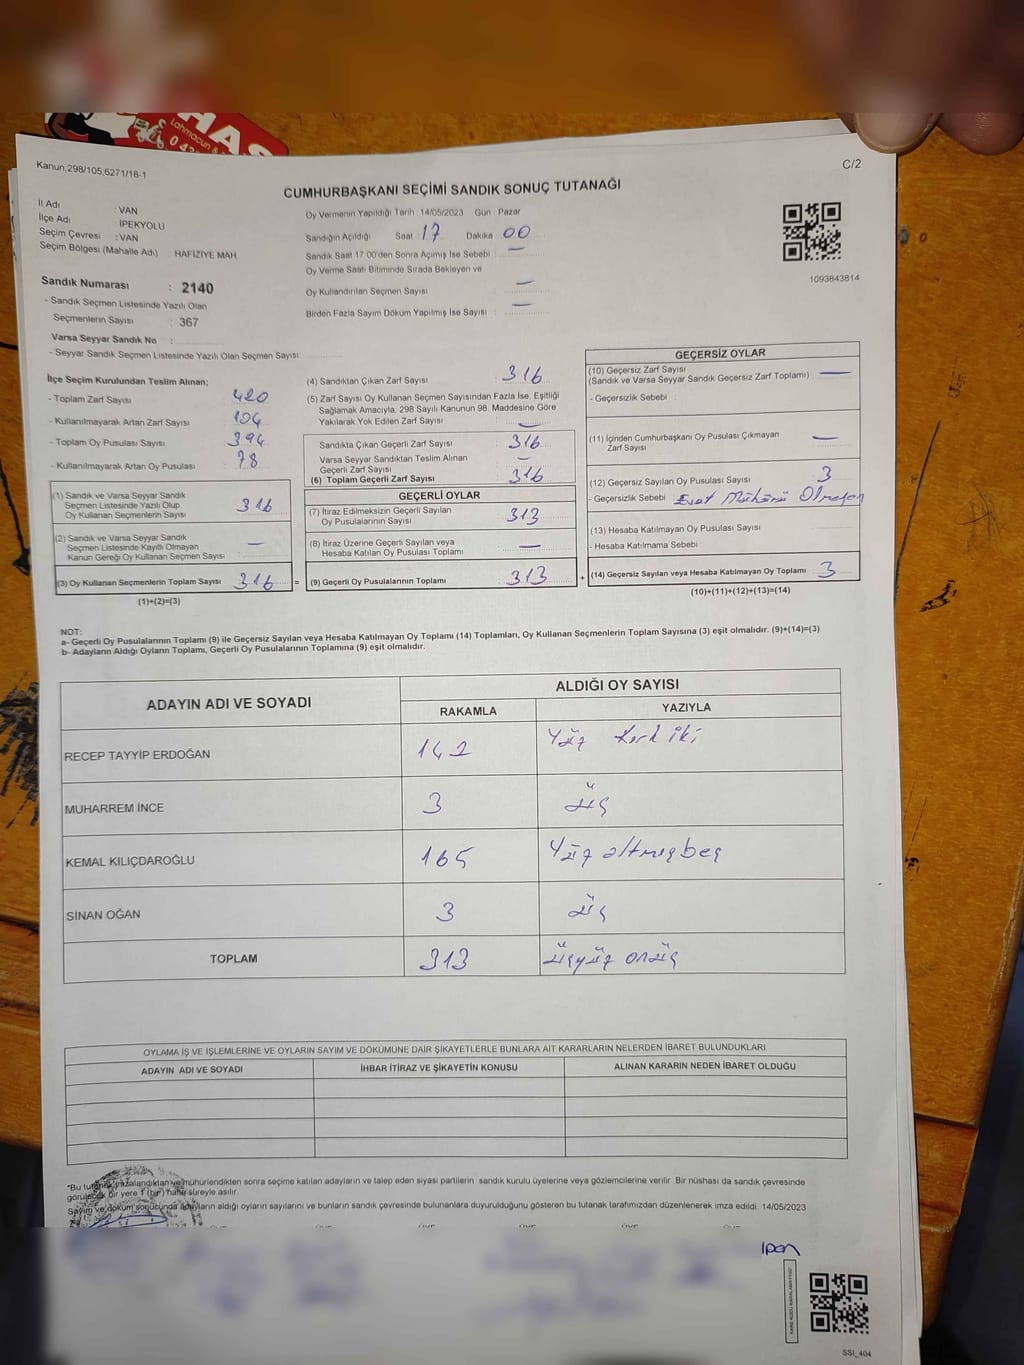 HAS
Lahmacun &
0 42
Kanun,298/105,6271/18-1
C/2
CUMHURBAŞKANI SEÇİMİ SANDIK SONUÇ TUTANAĞI
İl Adı : VAN
İlçe Adı : İPEKYOLU
Seçim Çevresi : VAN
Seçim Bölgesi (Mahalle Adı) : HAFİZİYE MAH.
Oy Vermenin Yapıldığı Tarih : 14/05/2023 Gün : Pazar
Sandığın Açıldığı Saat : 17 Dakika : 00
Sandık Saat 17.00'den Sonra Açılmış İse Sebebi : —
Oy Verme Saati Bitiminde Sırada Bekleyen ve
Oy Kullandırılan Seçmen Sayısı : —
Birden Fazla Sayım Döküm Yapılmış İse Sayısı : —
1093843814
Sandık Numarası : 2140
- Sandık Seçmen Listesinde Yazılı Olan
Seçmenlerin Sayısı : 367
Varsa Seyyar Sandık No :
- Seyyar Sandık Seçmen Listesinde Yazılı Olan Seçmen Sayısı:
İlçe Seçim Kurulundan Teslim Alınan;
- Toplam Zarf Sayısı : 420
- Kullanılmayarak Artan Zarf Sayısı : 104
- Toplam Oy Pusulası Sayısı : 394
- Kullanılmayarak Artan Oy Pusulası : 78
(1) Sandık ve Varsa Seyyar Sandık
Seçmen Listesinde Yazılı Olup
Oy Kullanan Seçmenlerin Sayısı : 316
(2) Sandık ve Varsa Seyyar Sandık
Seçmen Listesinde Kayıtlı Olmayan
Kanun Gereği Oy Kullanan Seçmen Sayısı : —
(3) Oy Kullanan Seçmenlerin Toplam Sayısı : 316 =
(1)+(2)=(3)
(4) Sandıktan Çıkan Zarf Sayısı : 316
(5) Zarf Sayısı Oy Kullanan Seçmen Sayısından Fazla İse, Eşitliği
Sağlamak Amacıyla, 298 Sayılı Kanunun 98. Maddesine Göre
Yakılarak Yok Edilen Zarf Sayısı : —
Sandıkta Çıkan Geçerli Zarf Sayısı : 316
Varsa Seyyar Sandıktan Teslim Alınan
Geçerli Zarf Sayısı : —
(6) Toplam Geçerli Zarf Sayısı : 316
GEÇERLİ OYLAR
(7) İtiraz Edilmeksizin Geçerli Sayılan
Oy Pusulalarının Sayısı : 313
(8) İtiraz Üzerine Geçerli Sayılan veya
Hesaba Katılan Oy Pusulası Toplamı : —
(9) Geçerli Oy Pusulalarının Toplamı : 313 +
GEÇERSİZ OYLAR
(10) Geçersiz Zarf Sayısı
(Sandık ve Varsa Seyyar Sandık Geçersiz Zarf Toplamı) : —
- Geçersizlik Sebebi :
(11) İçinden Cumhurbaşkanı Oy Pusulası Çıkmayan
Zarf Sayısı : —
(12) Geçersiz Sayılan Oy Pusulası Sayısı : 3
- Geçersizlik Sebebi : Evet Mührü Olmayan
(13) Hesaba Katılmayan Oy Pusulası Sayısı :
- Hesaba Katılmama Sebebi :
(14) Geçersiz Sayılan veya Hesaba Katılmayan Oy Toplamı : 3
(10)+(11)+(12)+(13)=(14)
NOT:
a- Geçerli Oy Pusulalarının Toplamı (9) ile Geçersiz Sayılan veya Hesaba Katılmayan Oy Toplamı (14) Toplamları, Oy Kullanan Seçmenlerin Toplam Sayısına (3) eşit olmalıdır. (9)+(14)=(3)
b- Adayların Aldığı Oyların Toplamı, Geçerli Oy Pusulalarının Toplamına (9) eşit olmalıdır.
ADAYIN ADI VE SOYADI ALDIĞI OY SAYISI
RAKAMLA YAZIYLA
RECEP TAYYİP ERDOĞAN 142 Yüz Kırk iki
MUHARREM İNCE 3 üç
KEMAL KILIÇDAROĞLU 165 Yüz altmışbeş
SİNAN OĞAN 3 üç
TOPLAM 313 üçyüz onüç
OYLAMA İŞ VE İŞLEMLERİNE VE OYLARIN SAYIM VE DÖKÜMÜNE DAİR ŞİKAYETLERLE BUNLARA AİT KARARLARIN NELERDEN İBARET BULUNDUKLARI
ADAYIN ADI VE SOYADI İHBAR İTİRAZ VE ŞİKAYETİN KONUSU ALINAN KARARIN NEDEN İBARET OLDUĞU
"Bu tutanak yazalandıktan ve mühürlendikten sonra seçime katılan adayların ve talep eden siyasi partilerin sandık kurulu üyelerine veya gözlemcilerine verilir. Bir nüshası da sandık çevresinde
görülecek bir yere 1 (bir) hafta süreyle asılır.
Sayım ve döküm sonucunda adayların aldığı oyların sayılarını ve bunların sandık çevresinde bulunanlara duyurulduğunu gösteren bu tutanak tarafımızdan düzenlenerek imza edildi. 14/05/2023
ipan
SSI_404